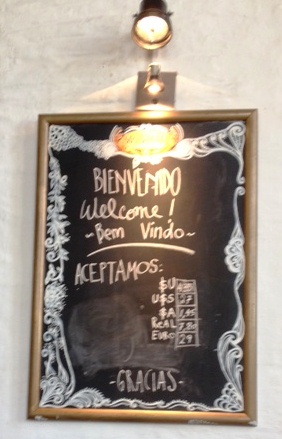 BIENVENIDO
Welcome!
~Bem Vindo~
ACEPTAMOS:
$U
U$S 27
$A 1,95
REAL 7,80
EURO 29
-GRACIAS-